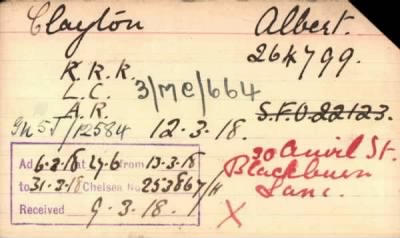 Clayton Albert.
264799.
K.R.R.
L.C. 3/MC/664
A.R. S.F.O 22123.
GM5J/12584 12.3.18.
30 Anvil St.
Blackburn
Lanc.
Ad 6.2.18 at 27.6 from 13.3.18
to 31.3.18 Chelsea No 253867/H
Received 9.3.18.
X